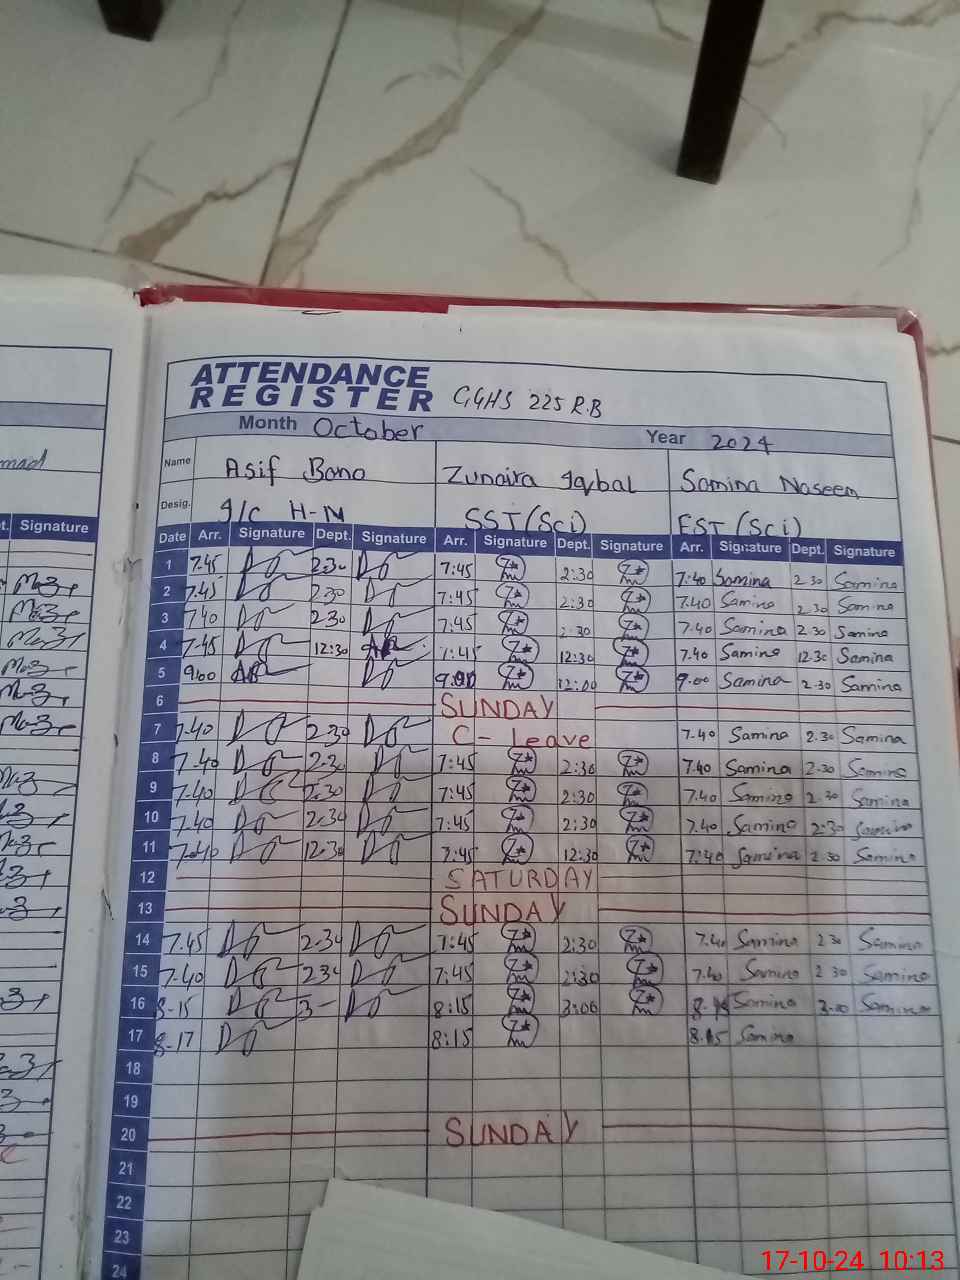 ATTENDANCE
REGISTER GGHS 225 R.B
Month October Year 2024
Name Asif Bano Zunaira Iqbal Samina Naseem
Desig. I/C H-M SST (Sci) EST (Sci)
t. Signature
Date Arr. Signature Dept. Signature Arr. Signature Dept. Signature Arr. Signature Dept. Signature
1 7.45 2.30 7:45 2:30 7:40 Samina 2.30 Samina
2 7.45 2.30 7:45 2:30 7.40 Samina 2.30 Samina
3 7.40 2.30 7:45 2:30 7.40 Samina 2.30 Samina
4 7.45 12:30 7:45 12:30 7.40 Samina 12.30 Samina
5 9.00 9.00 12:00 9.00 Samina 2.30 Samina
6 SUNDAY
7 7.40 2.30 C- Leave 7.40 Samina 2.30 Samina
8 7.40 2.30 7:45 2:30 7.40 Samina 2.30 Samina
9 7.40 2.30 7:45 2:30 7.40 Samina 2.30 Samina
10 7.40 2.30 7:45 2:30 7.40 Samina 2:30 Samina
11 7.40 12.30 7:45 12:30 7:40 Samina 2.30 Samina
12 SATURDAY
13 SUNDAY
14 7.45 2.30 7:45 2:30 7.40 Samina 2 30 Samina
15 7.40 2.30 7:45 2:30 7.40 Samina 2 30 Samina
16 8-15 3- 8:15 3:00 8.15 Samina 3.00 Samina
17 8-17 8:15 8.15 Samina
18
19
20 SUNDAY
21
22
23
24
17-10-24 10:13